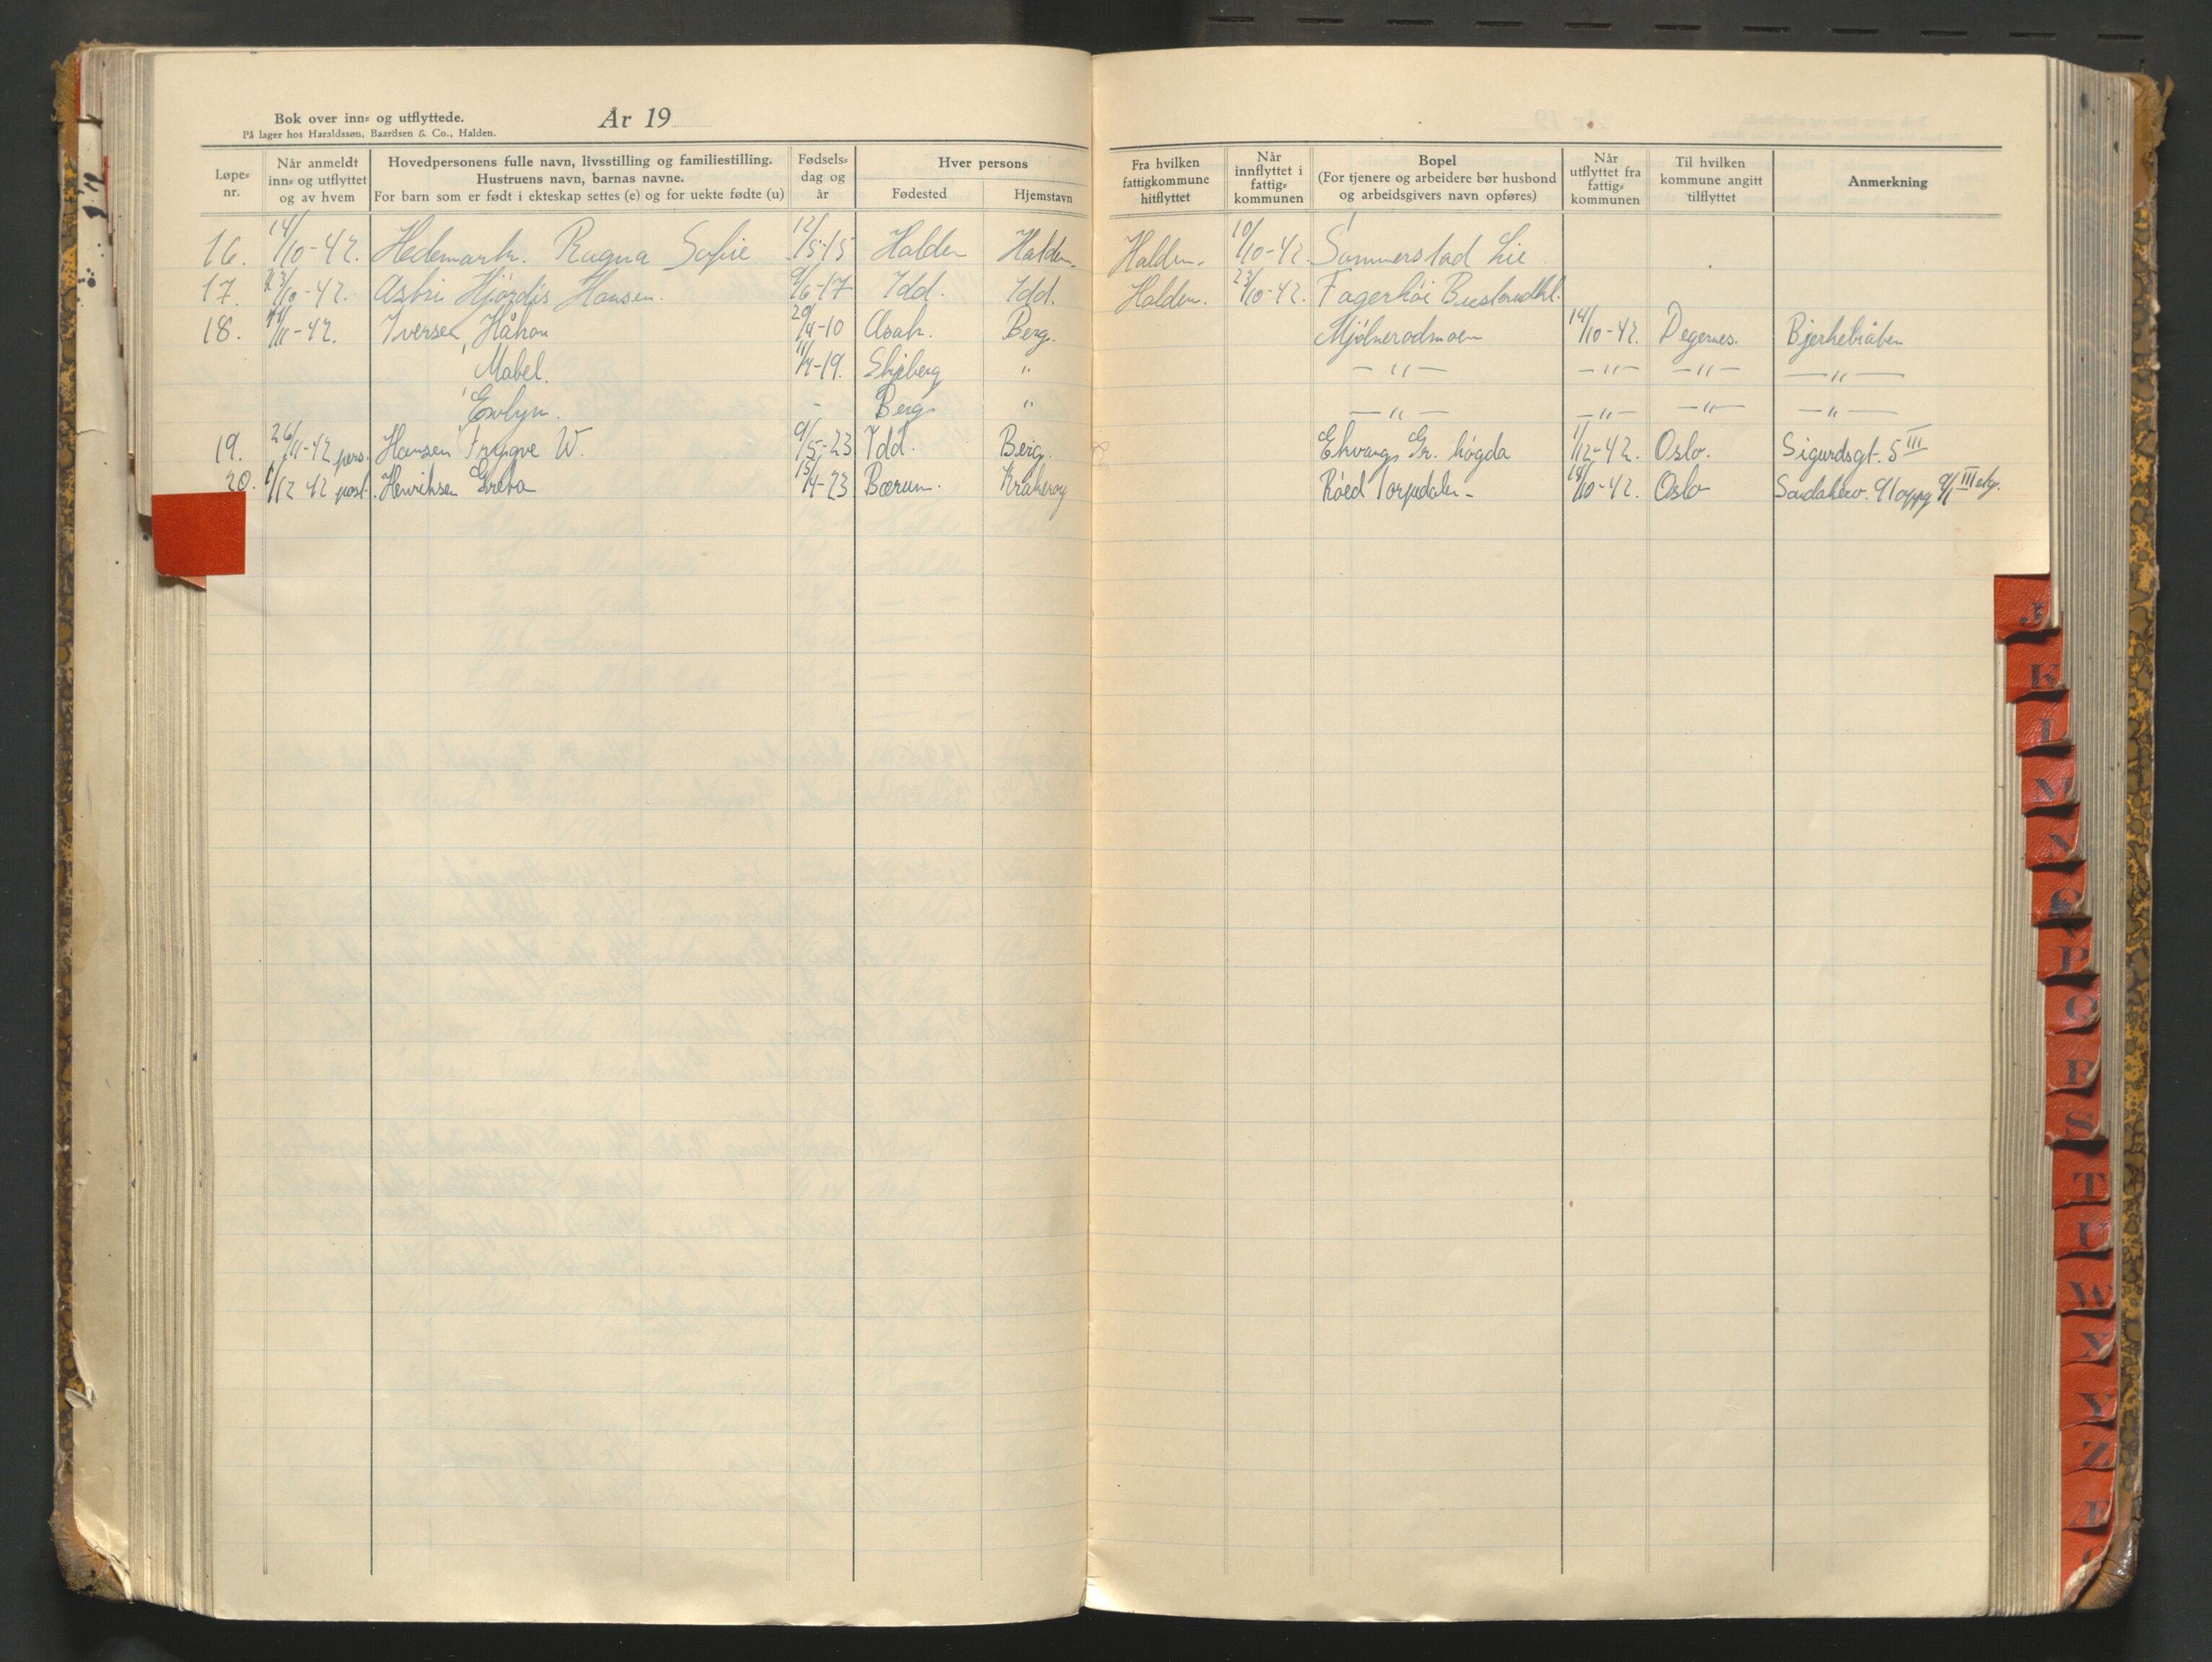 Bok over inn= og utflyttede.
På lager hos Haraldssøn, Baardsen & Co., Halden.
År 19
Løpe= nr.
Når anmeldt inn= og utflyttet og av hvem
Hovedpersonens fulle navn, livsstilling og familiestilling.
Hustruens navn, barnas navne.
For barn som er født i ekteskap settes (e) og for uekte fødte (u)
Fødsels= dag og år
Hver persons
Fødested
Hjemstavn
Fra hvilken fattigkommune hitflyttet
Når innflyttet i fattig= kommunen
Bopel
(For tjenere og arbeidere bør husbond og arbeidsgivers navn opføres)
Når utflyttet fra fattig= kommunen
Til hvilken kommune angitt tilflyttet
Anmerkning
16. 14/10-42. Hedemark. Ragna Sofie 12/5-15 Halden Halden. Halden. 10/10-42. Sommerstad Lie
17. 23/10-42. Hjørdis Hansen. 9/6-17 Idd. Idd. Halden. 23/10-42. Fagerhøi
18. /11-42. Iversen, Håkon 29/4-10 Asak. Berg. 14/10-42. Degernes.
Mabel. 11/4-19. Skjeberg " — " — — " — — " — — " —
Evelyn. - Berg " — " — — " — — " — — " —
19. 26/11-42 pers. Hansen Trygve W. 9/5-23 Idd. Berg. høgda 1/12-42. Oslo. Sigurdsgt. 5 III
20. 1/12 42 post. Henriksen Greta 15/4-23 Bærum. Kråkerøy Røed Torpedalen - /10-42. Oslo 91 oppg 9/1 III
J
K
L
M
N
O
P
Q
R
S
T
U
W
X
Y
Z
Æ